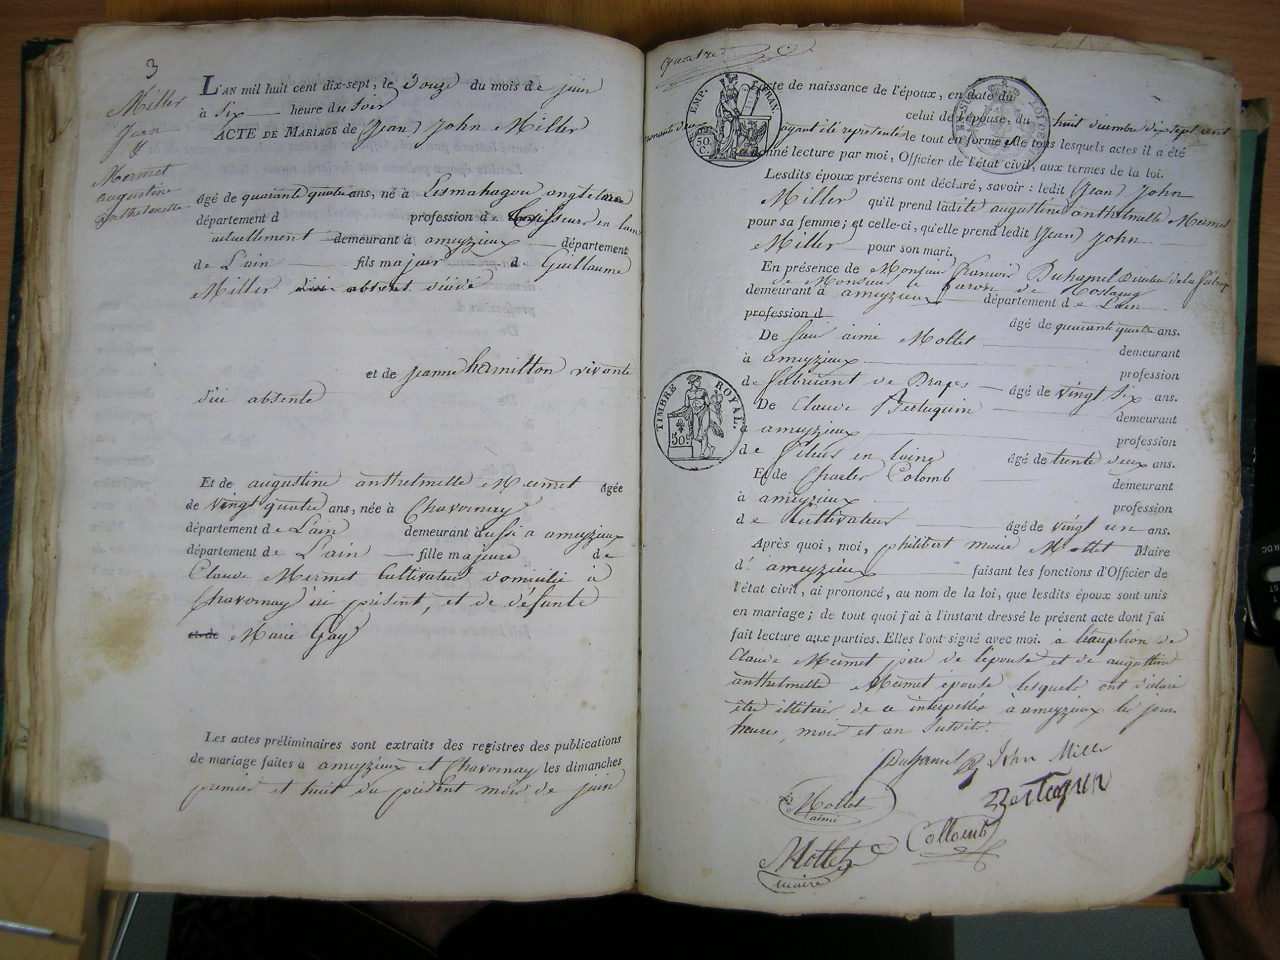 3
Miller
Jean
Y
Mermet
augustine
anthelmette
L'AN mil huit cent dix-sept, le Douze du mois de juin
à Six heure du Soir
ACTE DE MARIAGE de (Jean) John Miller
âgé de quarante quatre ans, né à Lesmahagou angleterre
département d profession de tisseur en laine
actuellement demeurant à ameyzieux département
de L'ain fils majeur d Guillaume
Miller absent
et de jeanne hamilton vivante
d'ici absente
Et de augustine anthelmette Mermet âgée
de vingt quatre ans, née à Chavornay
département de L'ain demeurant aussi a ameyzieux
département de L'ain fille majeure de
Claude Mermet Cultivateur domicilié à
Chavornay ici présent, et de défunte
et de Marie Gay
Les actes préliminaires sont extraits des registres des publications
de mariage faites a ameyzieux et Chavornay les dimanches
premier et huit du présent mois de juin
quatre
EMP. FRAN.
50 C.
acte de naissance de l'époux, en date du
celui de l'épouse, du huit décembre dix sept cent
ayant été représenté le tout en forme de tous lesquels actes il a été
donné lecture par moi, Officier de l'état civil, aux termes de la loi.
Lesdits époux présens ont déclaré, savoir : ledit (Jean) John
Miller qu'il prend ladite augustine anthelmette Mermet
pour sa femme; et celle-ci, qu'elle prend ledit (Jean) John
Miller pour son mari.
En présence de Monsieur françois Duhamel Directeur de la fabrique
de Monsieur le Baron de Costaing
demeurant à ameyzieux département de L'ain
profession d
âgé de quarante quatre ans.
De Sieur aimé Mollet demeurant
à ameyzieux profession
de fabricant de Draps âgé de vingt six ans.
De Claude Bertuquin demeurant
ameyzieux profession
de fileur en laine âgé de trente deux ans.
Et de Charles Colomb demeurant
à ameyzieux profession
de Cultivateur âgé de vingt un ans.
TIMBRE ROYAL.
50 c.
Après quoi, moi, philibert marie Mottet Maire
d' ameyzieux faisant les fonctions d'Officier de
l'état civil, ai prononcé, au nom de la loi, que lesdits époux sont unis
en mariage; de tout quoi j'ai à l'instant dressé le présent acte dont j'ai
fait lecture aux parties. Elles l'ont signé avec moi. a l'exception de
Claude Mermet père de l'épouse et de augustine
anthelmette Mermet épouse lesquels ont déclaré
être illitérés de ce interpellés à ameyzieux les jour
heures, mois et an Susdits.
Duhamel John Miller
Mollet
aimé
Bertuquin
Collomb
Mottet
maire